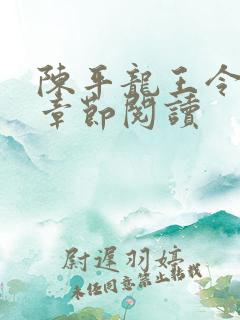 陳平龍王令
章節閱讀
尉遲羽婷
未經同意禁止轉載